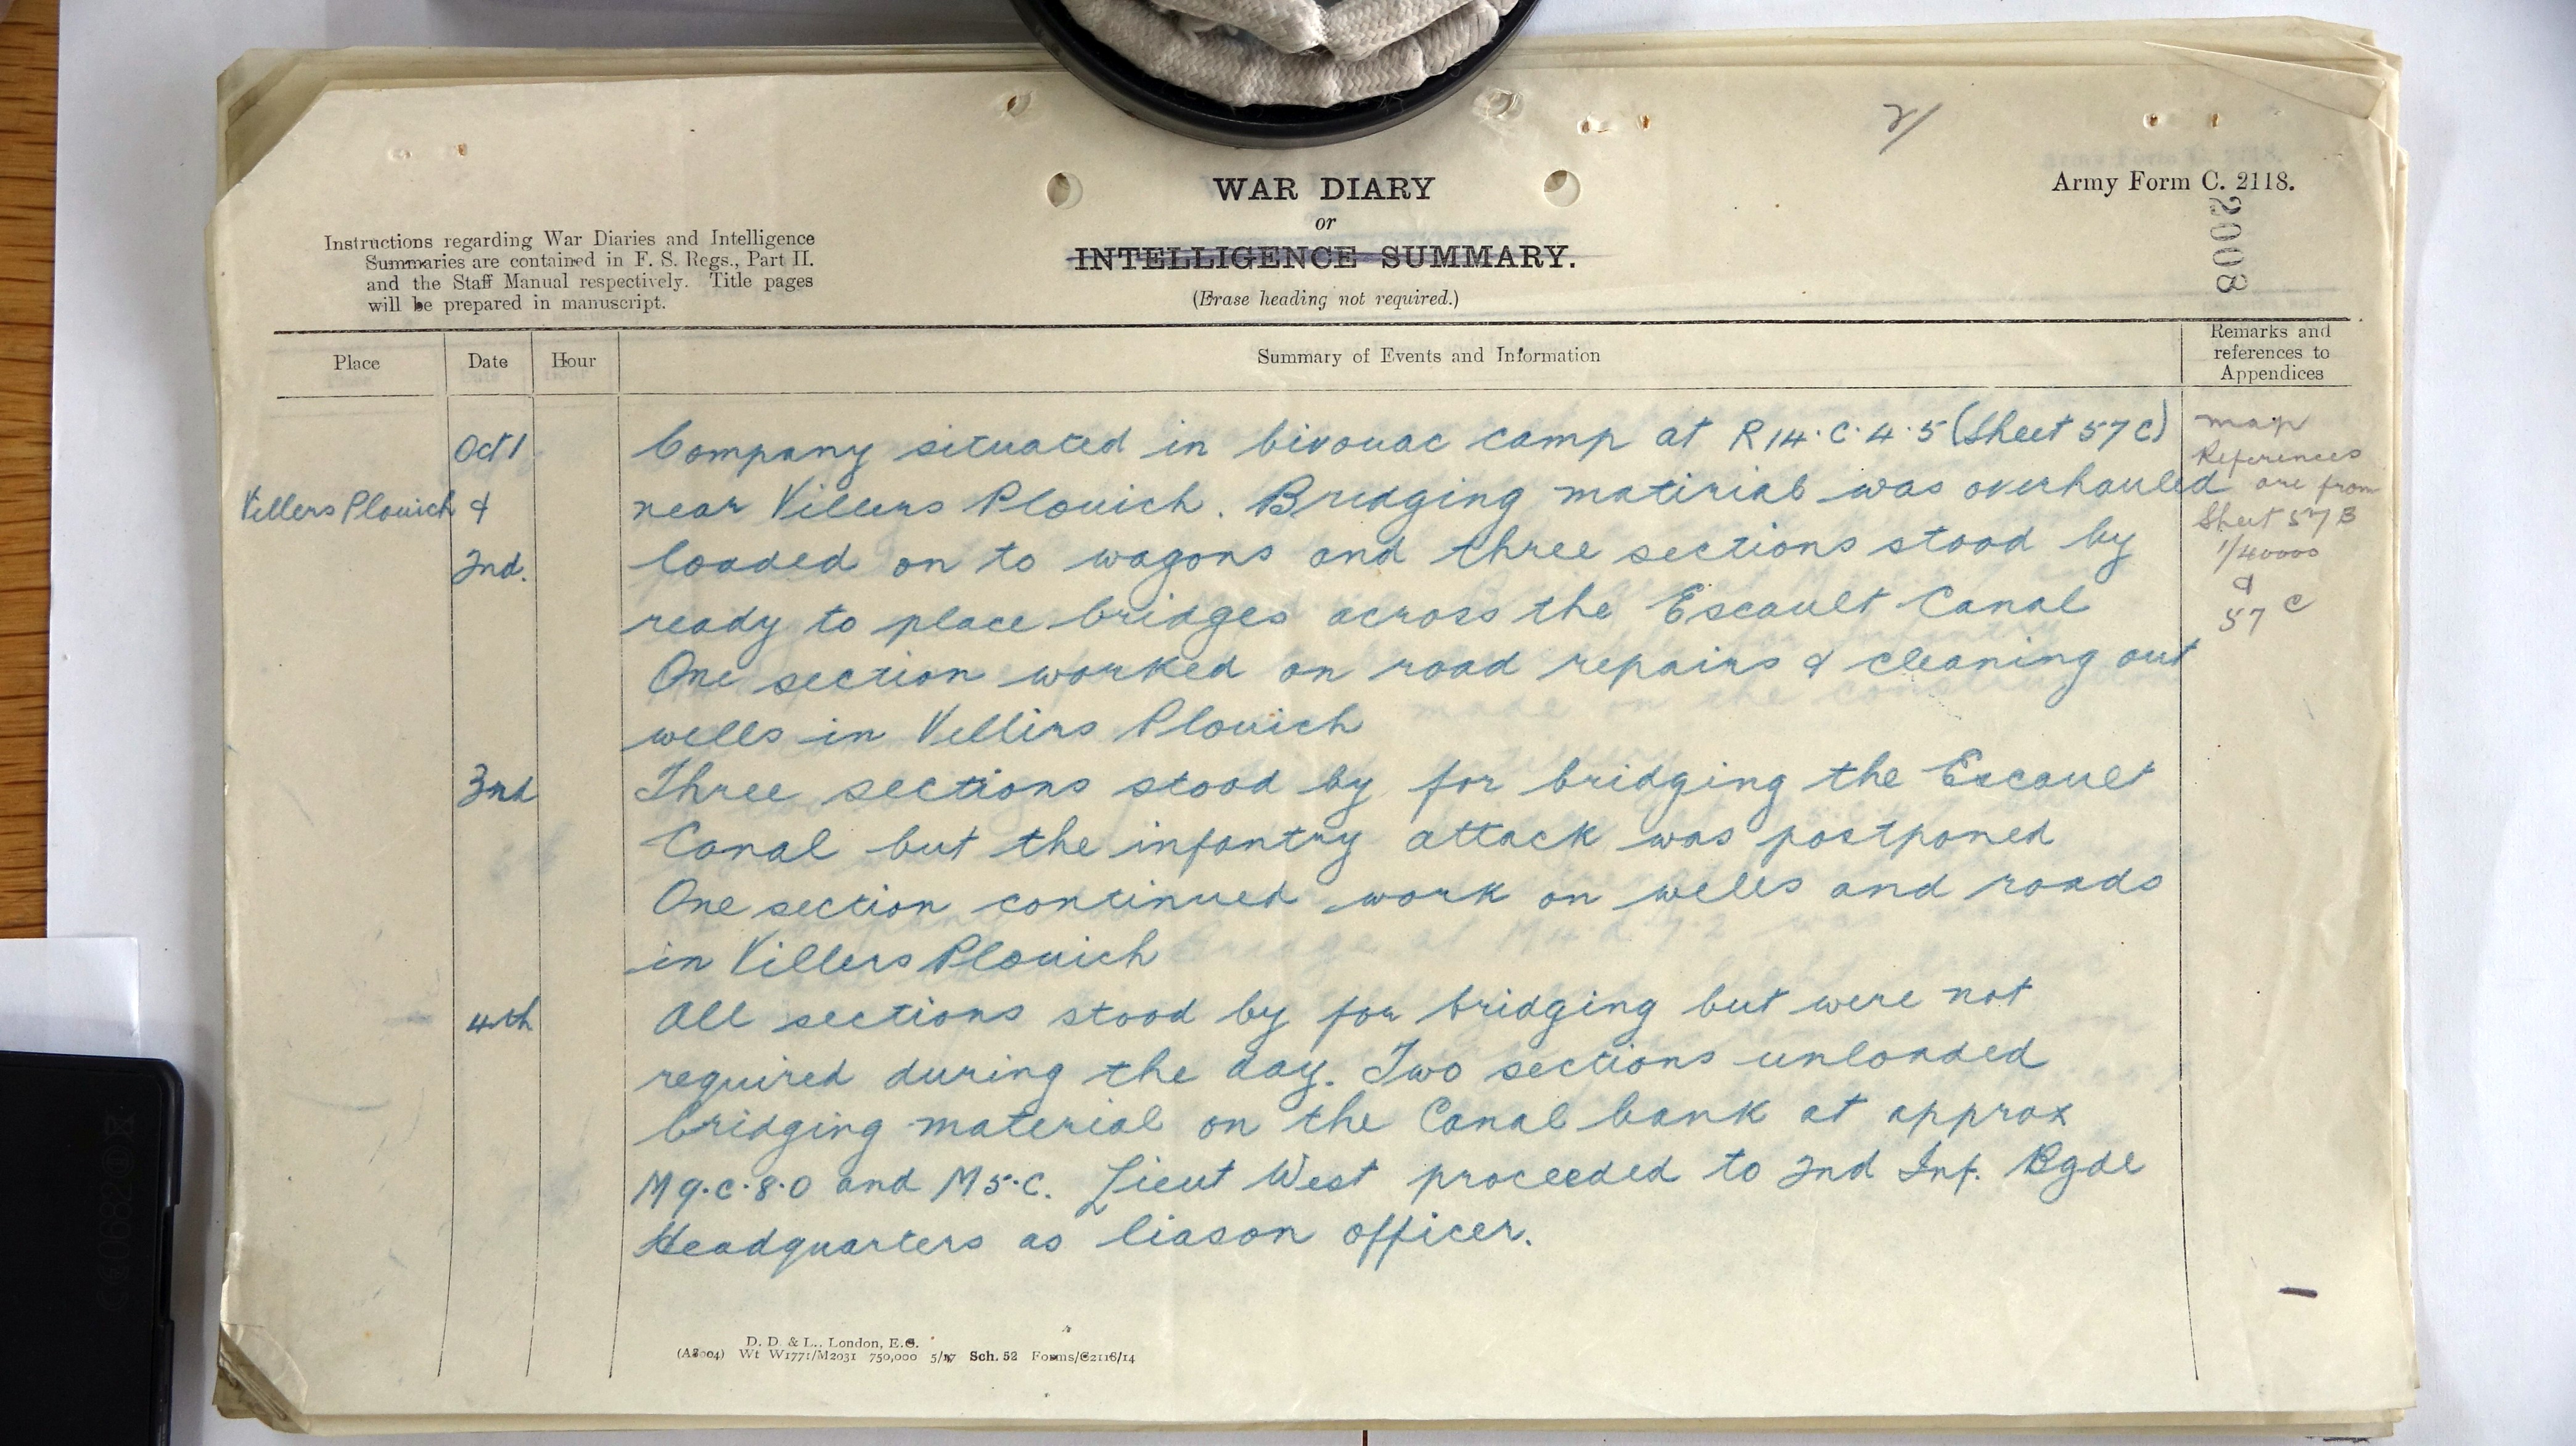 2/
WAR DIARY
or
INTELLIGENCE SUMMARY.
(Erase heading not required.)
Army Form C. 2118.
2008
Instructions regarding War Diaries and Intelligence
Summaries are contained in F. S. Regs., Part II.
and the Staff Manual respectively. Title pages
will be prepared in manuscript.
Place
Date
Hour
Summary of Events and Information
Remarks and
references to
Appendices
Oct 1 Company situated in bivouac camp at R14.C.4.5 (Sheet 57C)
Villers Plouich & near Villers Plouich. Bridging matirial was overhauled
2nd. loaded on to wagons and three sections stood by
ready to place bridges across the Escault Canal
One section worked on road repairs & cleaning out
wells in Villirs Plouich
3nd Three sections stood by for bridging the Escault
Canal but the infantry attack was postponed
One section continued work on wells and roads
in Villers Plouich
4th All sections stood by for bridging but were not
required during the day. Two sections unloaded
bridging material on the Canal bank at approx
M9.c.8.0 and M5.C. Lieut West proceeded to 2nd Inf. Bgde
Headquarters as liason officer.
map
References
are from
Sheet 57B
1/40000
&
57 C
D. D. & L., London, E.C.
(A8004) Wt W1771/M2031 750,000 5/17 Sch. 52 Forms/C2118/14